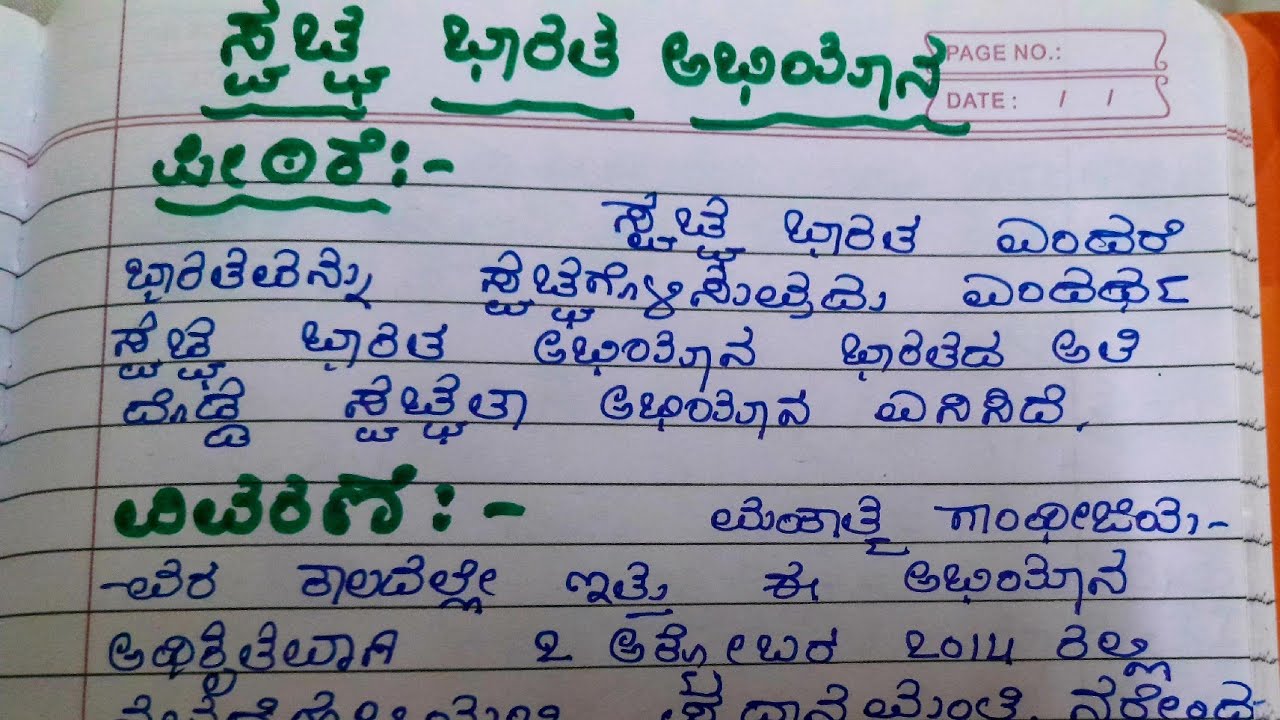 ಸ್ವಚ್ಛ ಭಾರತ ಅಭಿಯಾನ
PAGE NO.:
DATE : / /
ಪೀಠಿಕೆ :-
ಸ್ವಚ್ಛ ಭಾರತ ಎಂದರೆ
ಭಾರತವನ್ನು ಸ್ವಚ್ಛಗೊಳಿಸುವುದು ಎಂದರ್ಥ
ಸ್ವಚ್ಛ ಭಾರತ ಅಭಿಯಾನ ಭಾರತದ ಅತಿ
ದೊಡ್ಡ ಸ್ವಚ್ಛತಾ ಅಭಿಯಾನ ಎನಿಸಿದೆ.
ವಿವರಣೆ :-
ಮಹಾತ್ಮ ಗಾಂಧೀಜಿಯ-
-ವರ ಕಾಲದಲ್ಲೇ ಇತ್ತು ಈ ಅಭಿಯಾನ
ಅಧಿಕೃತವಾಗಿ 2 ಅಕ್ಟೋಬರ 2014 ರಲ್ಲಿ